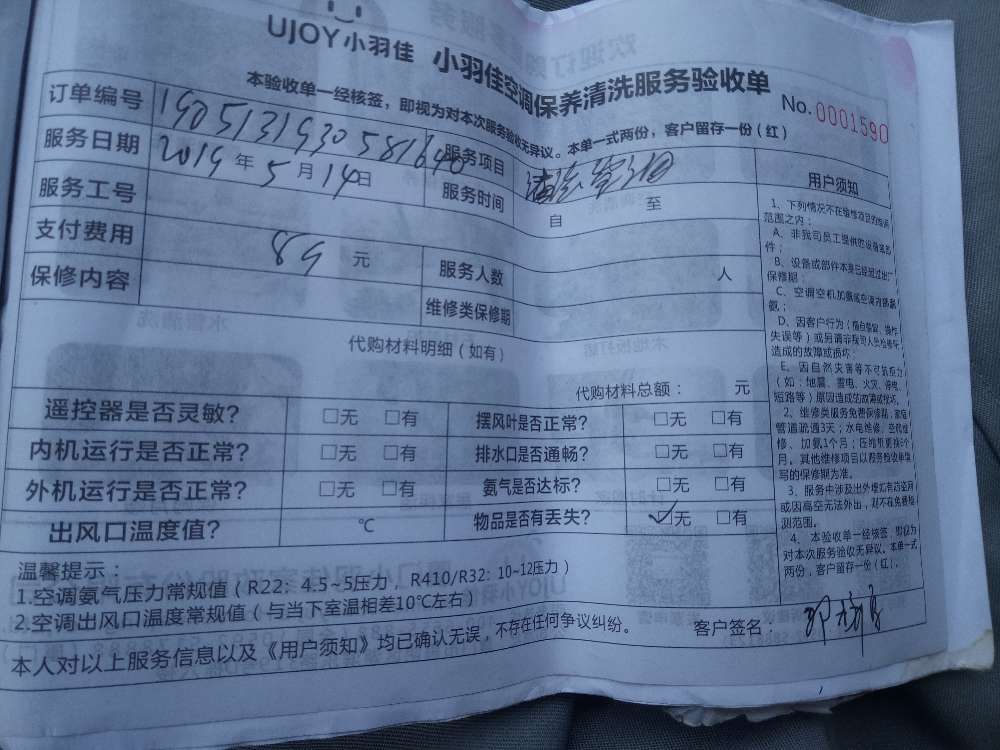 UJOY小羽佳 小羽佳空调保养清洗服务验收单
本验收单一经核签，即视为对本次服务验收无异议。本单一式两份，客户留存一份（红）
No.0001590
订单编号 190513193058164 服务项目 清洗空调
服务日期 2019年5月14日 服务时间 自 至
服务工号
支付费用 89元 服务人数 人
保修内容 维修类保修期
代购材料明细（如有）
代购材料总额： 元
遥控器是否灵敏？ □无 □有 摆风叶是否正常？ □无 □有
内机运行是否正常？ □无 □有 排水口是否通畅？ □无 □有
外机运行是否正常？ □无 □有 氨气是否达标？ □无 □有
出风口温度值？ ℃ 物品是否有丢失？ ☑无 □有
用户须知
1、下列情况不在维修项目的保修
范围之内：
A、非我司员工提供的设备或部
件；
B、设备或部件本身已经超过出厂
保修期；
C、空调空机加氨或空调内部漏
氨；
D、因客户行为（擅自移装、操作
失误等）或另请非我司人员检修等
造成的故障或损坏；
E、因自然灾害等不可抗拒力
（如：地震、雷电、火灾、停电、
短路等）原因造成的故障或损坏。
2、维修类服务免费保修期：家庭
管道疏通3天；水电维修、空调维
修、加氨1个月；压缩机更换6个
月。其他维修项目以服务验收单填
写的保修期为准。
3、服务中涉及出外墙如有动空间
或因高空无法外出，对不在免费检
测范围。
4、本验收单一经核签，即视为
对本次服务验收无异议。本单一式
两份，客户留存一份（红）。
温馨提示：
1.空调氨气压力常规值（R22：4.5~5压力，R410/R32：10~12压力）
2.空调出风口温度常规值（与当下室温相差10℃左右）
本人对以上服务信息以及《用户须知》均已确认无误，不存在任何争议纠纷。 客户签名：